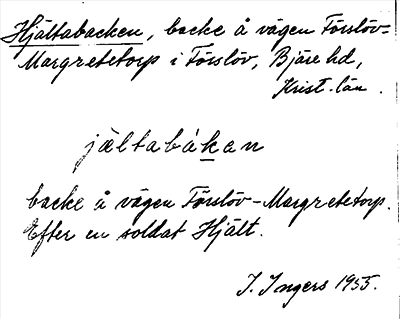 Hjältabacken, backe å vägen Förslöv-
Margretetorp i Förslöv, Bjäre hd,
Krist. län.
jæltabákan
backe å vägen Förslöv-Margretetorp.
Efter en soldat Hjält.
I. Ingers 1955.